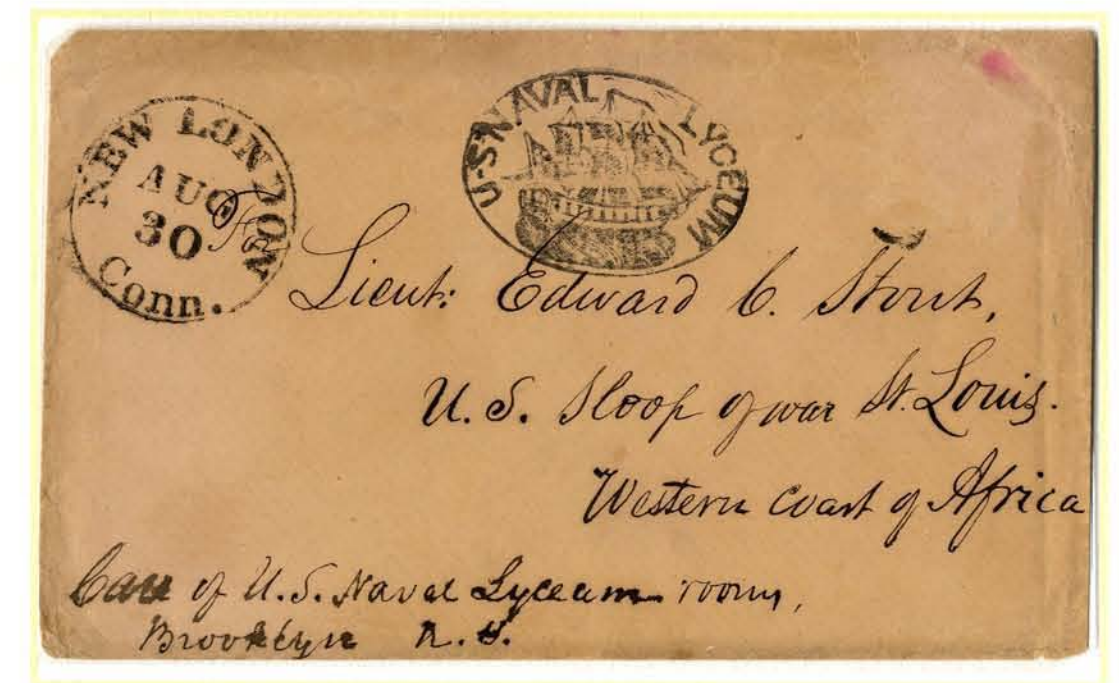 NEW LONDON
AUG
30
Conn.
U.S NAVAL LYCEUM
Lieut: Edward C. Stout,
U. S. Sloop of war St. Louis.
Western Coast of Africa
Care of U. S. Naval Lyceum rooms,
Brooklyn N. Y.